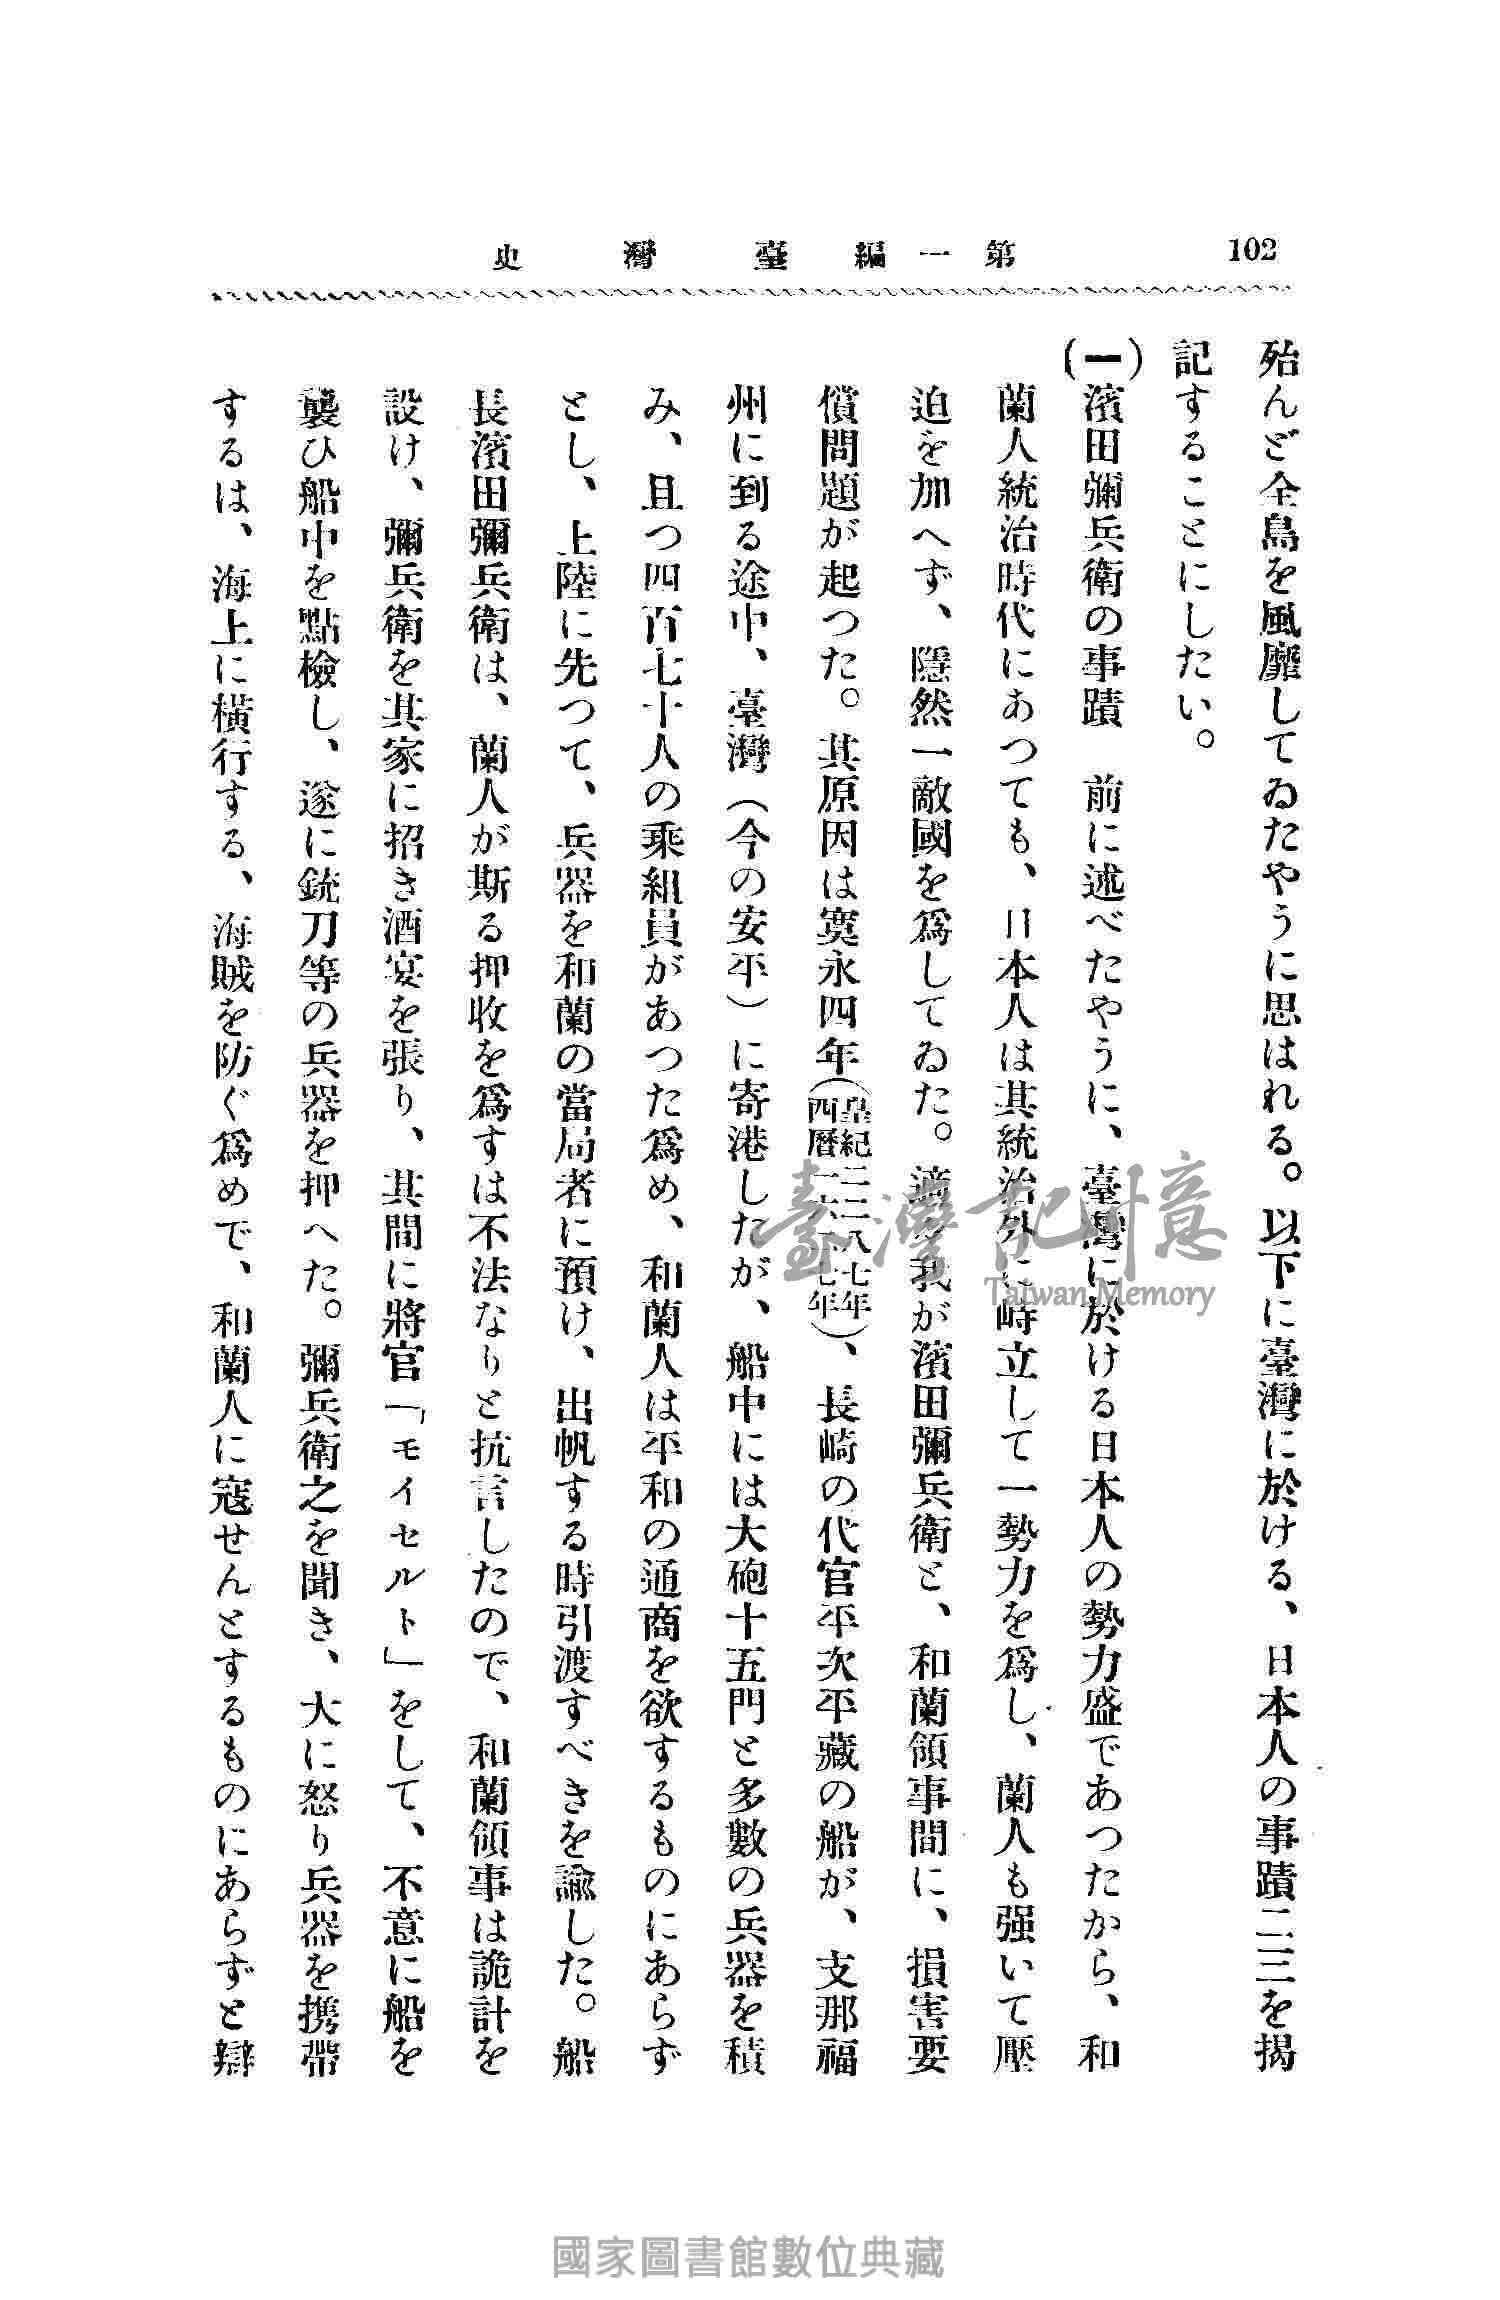 102
第一編臺灣史
殆んど全島を風靡してゐたやうに思はれる。以下に臺灣に於ける、日本人の事蹟二三を揭
記することにしたい。
(一)濱田彌兵衛の事蹟　前に述べたやうに、臺灣に於ける日本人の勢力盛であつたから、和
蘭人統治時代にあつても、日本人は其統治外に峙立して一勢力を爲し、蘭人も强いて壓
迫を加へず、隱然一敵國を爲してゐた。適々我が濱田彌兵衛と、和蘭領事間に、損害要
償問題が起つた。其原因は寬永四年(皇紀二二八七年西曆一六二七年)、長崎の代官平次平藏の船が、支那福
州に到る途中、臺灣(今の安平)に寄港したが、船中には大砲十五門と多數の兵器を積
み、且つ四百七十人の乘組員があつた爲め、和蘭人は平和の通商を欲するものにあらず
とし、上陸に先つて、兵器を和蘭の當局者に預け、出帆する時引渡すべきを諭した。船
長濱田彌兵衛は、蘭人が斯る押收を爲すは不法なりと抗言したので、和蘭領事は詭計を
設け、彌兵衛を其家に招き酒宴を張り、其間に將官「モイセルト」をして、不意に船を
襲ひ船中を點檢し、遂に銃刀等の兵器を押へた。彌兵衛之を聞き、大に怒り兵器を携帶
するは、海上に橫行する、海賊を防ぐ爲めで、和蘭人に寇せんとするものにあらずと辯
臺灣記憶
Taiwan Memory
國家圖書館數位典藏